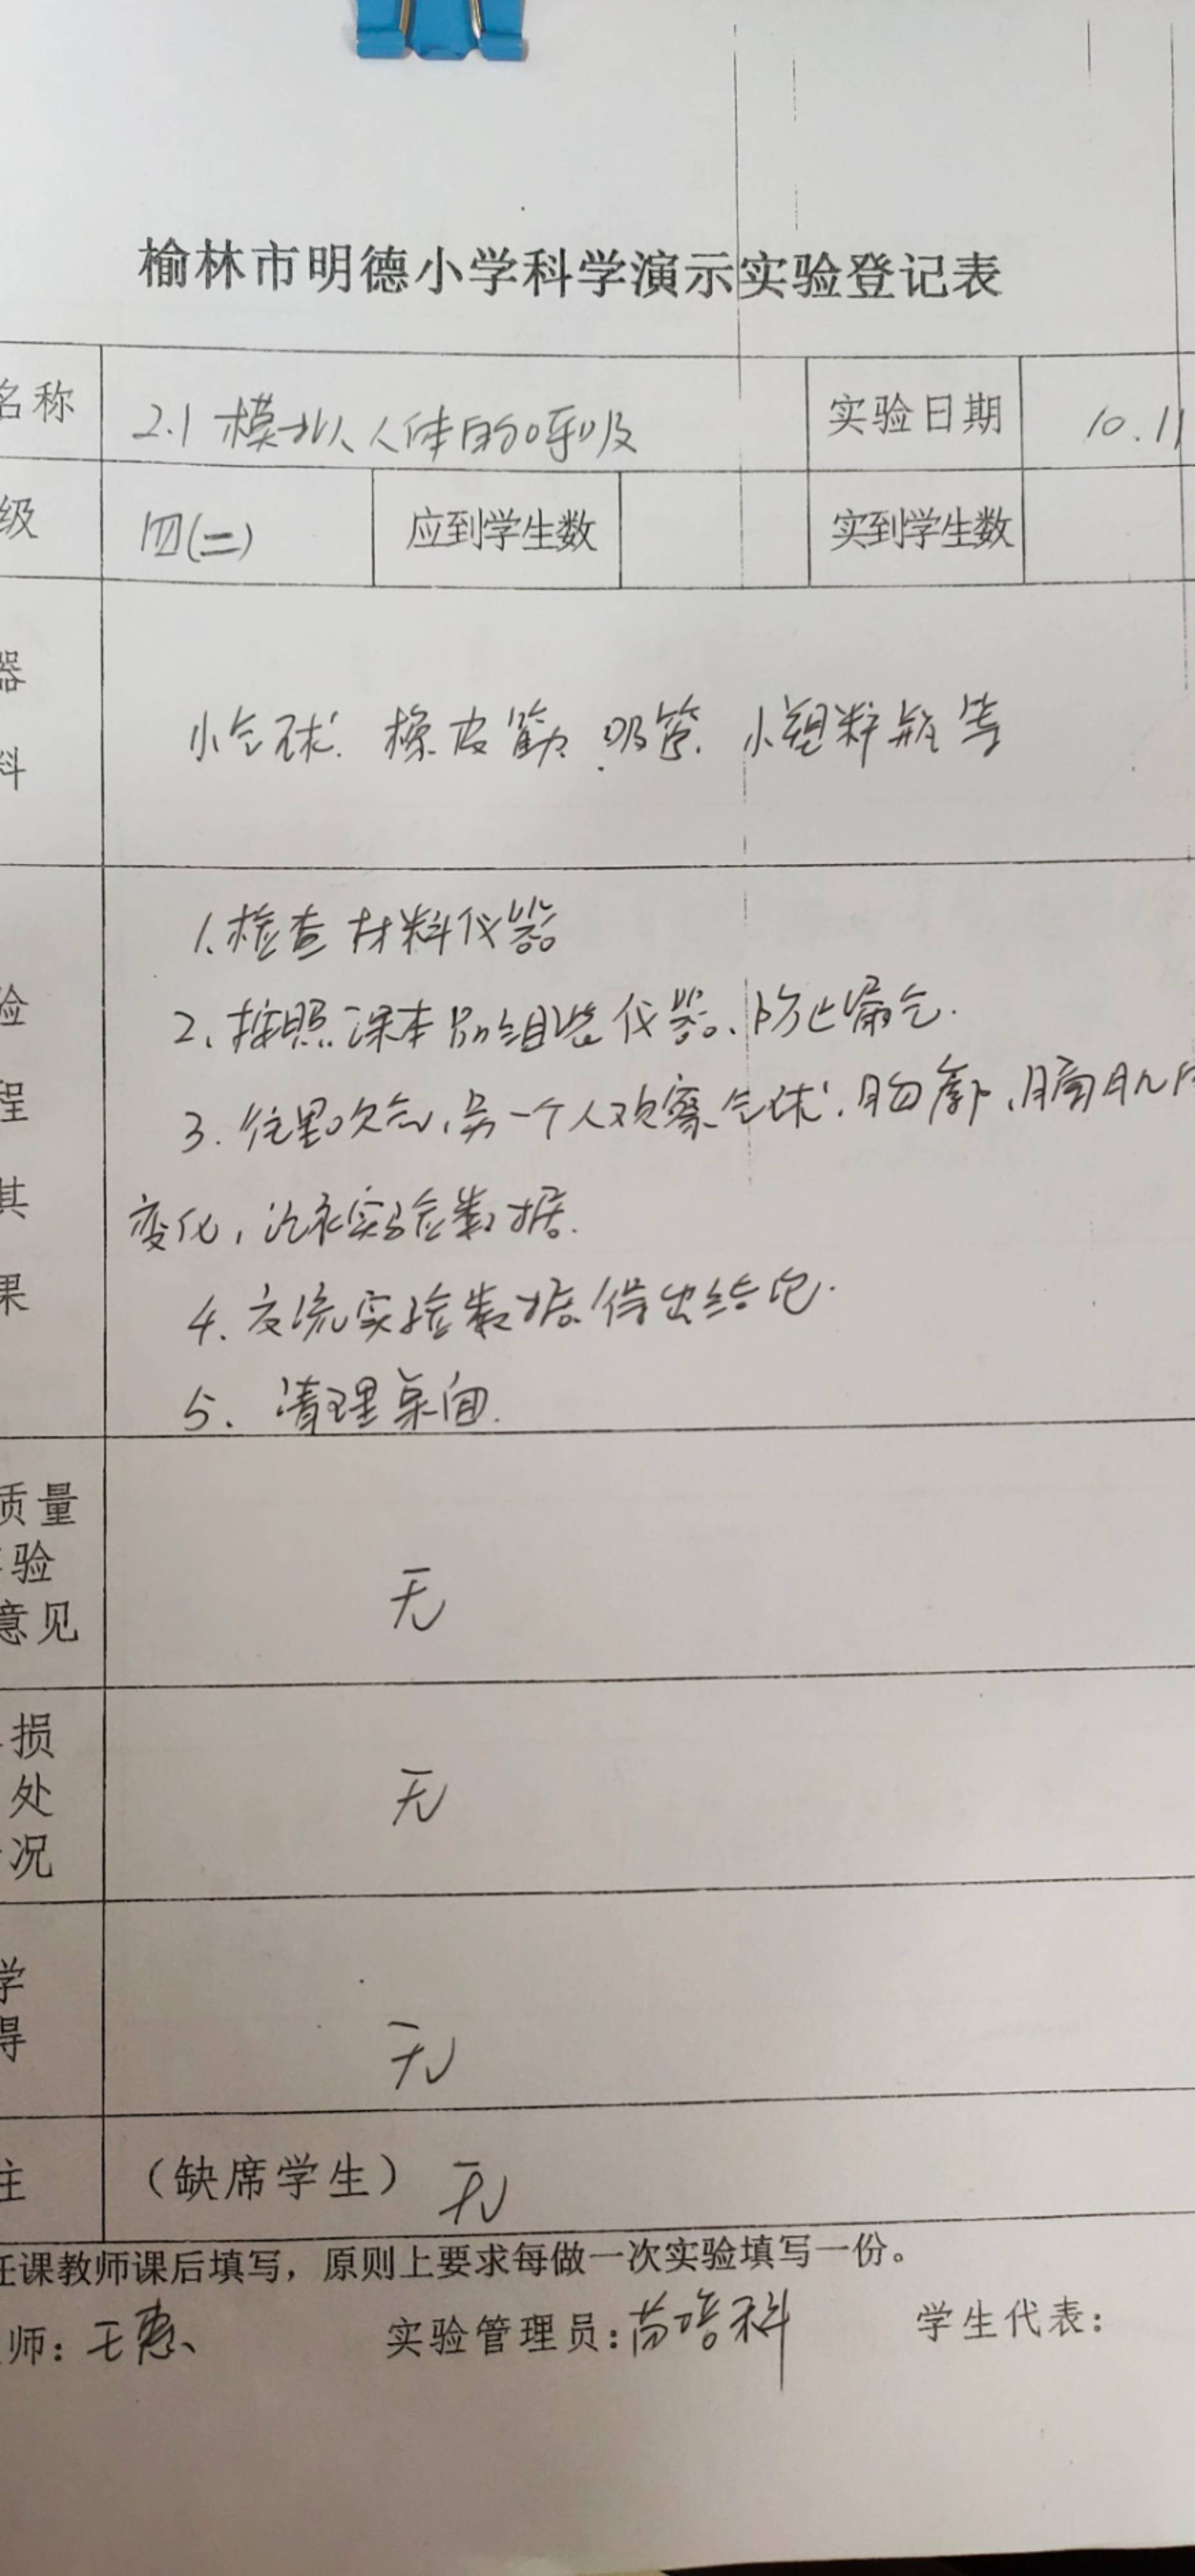 榆林市明德小学科学演示实验登记表
名称 2.1 模拟人体的呼吸 实验日期 10.11
级 四(二) 应到学生数 实到学生数
器
小气球. 橡皮筋. 吸管. 小塑料瓶等
料
1.检查材料仪器
验
2.按照课本 组装仪器、防止漏气.
程
3.往里吹气,另一个人观察气球.胸廓、膈肌
其
变化,记录实验数据.
果
4.交流实验数据.得出结论.
5.清理桌面.
质量
验
意见
无
损
处
况
无
学
得
无
注 (缺席学生) 无
任课教师课后填写,原则上要求每做一次实验填写一份。
师: 王惠 实验管理员: 苗培科 学生代表: